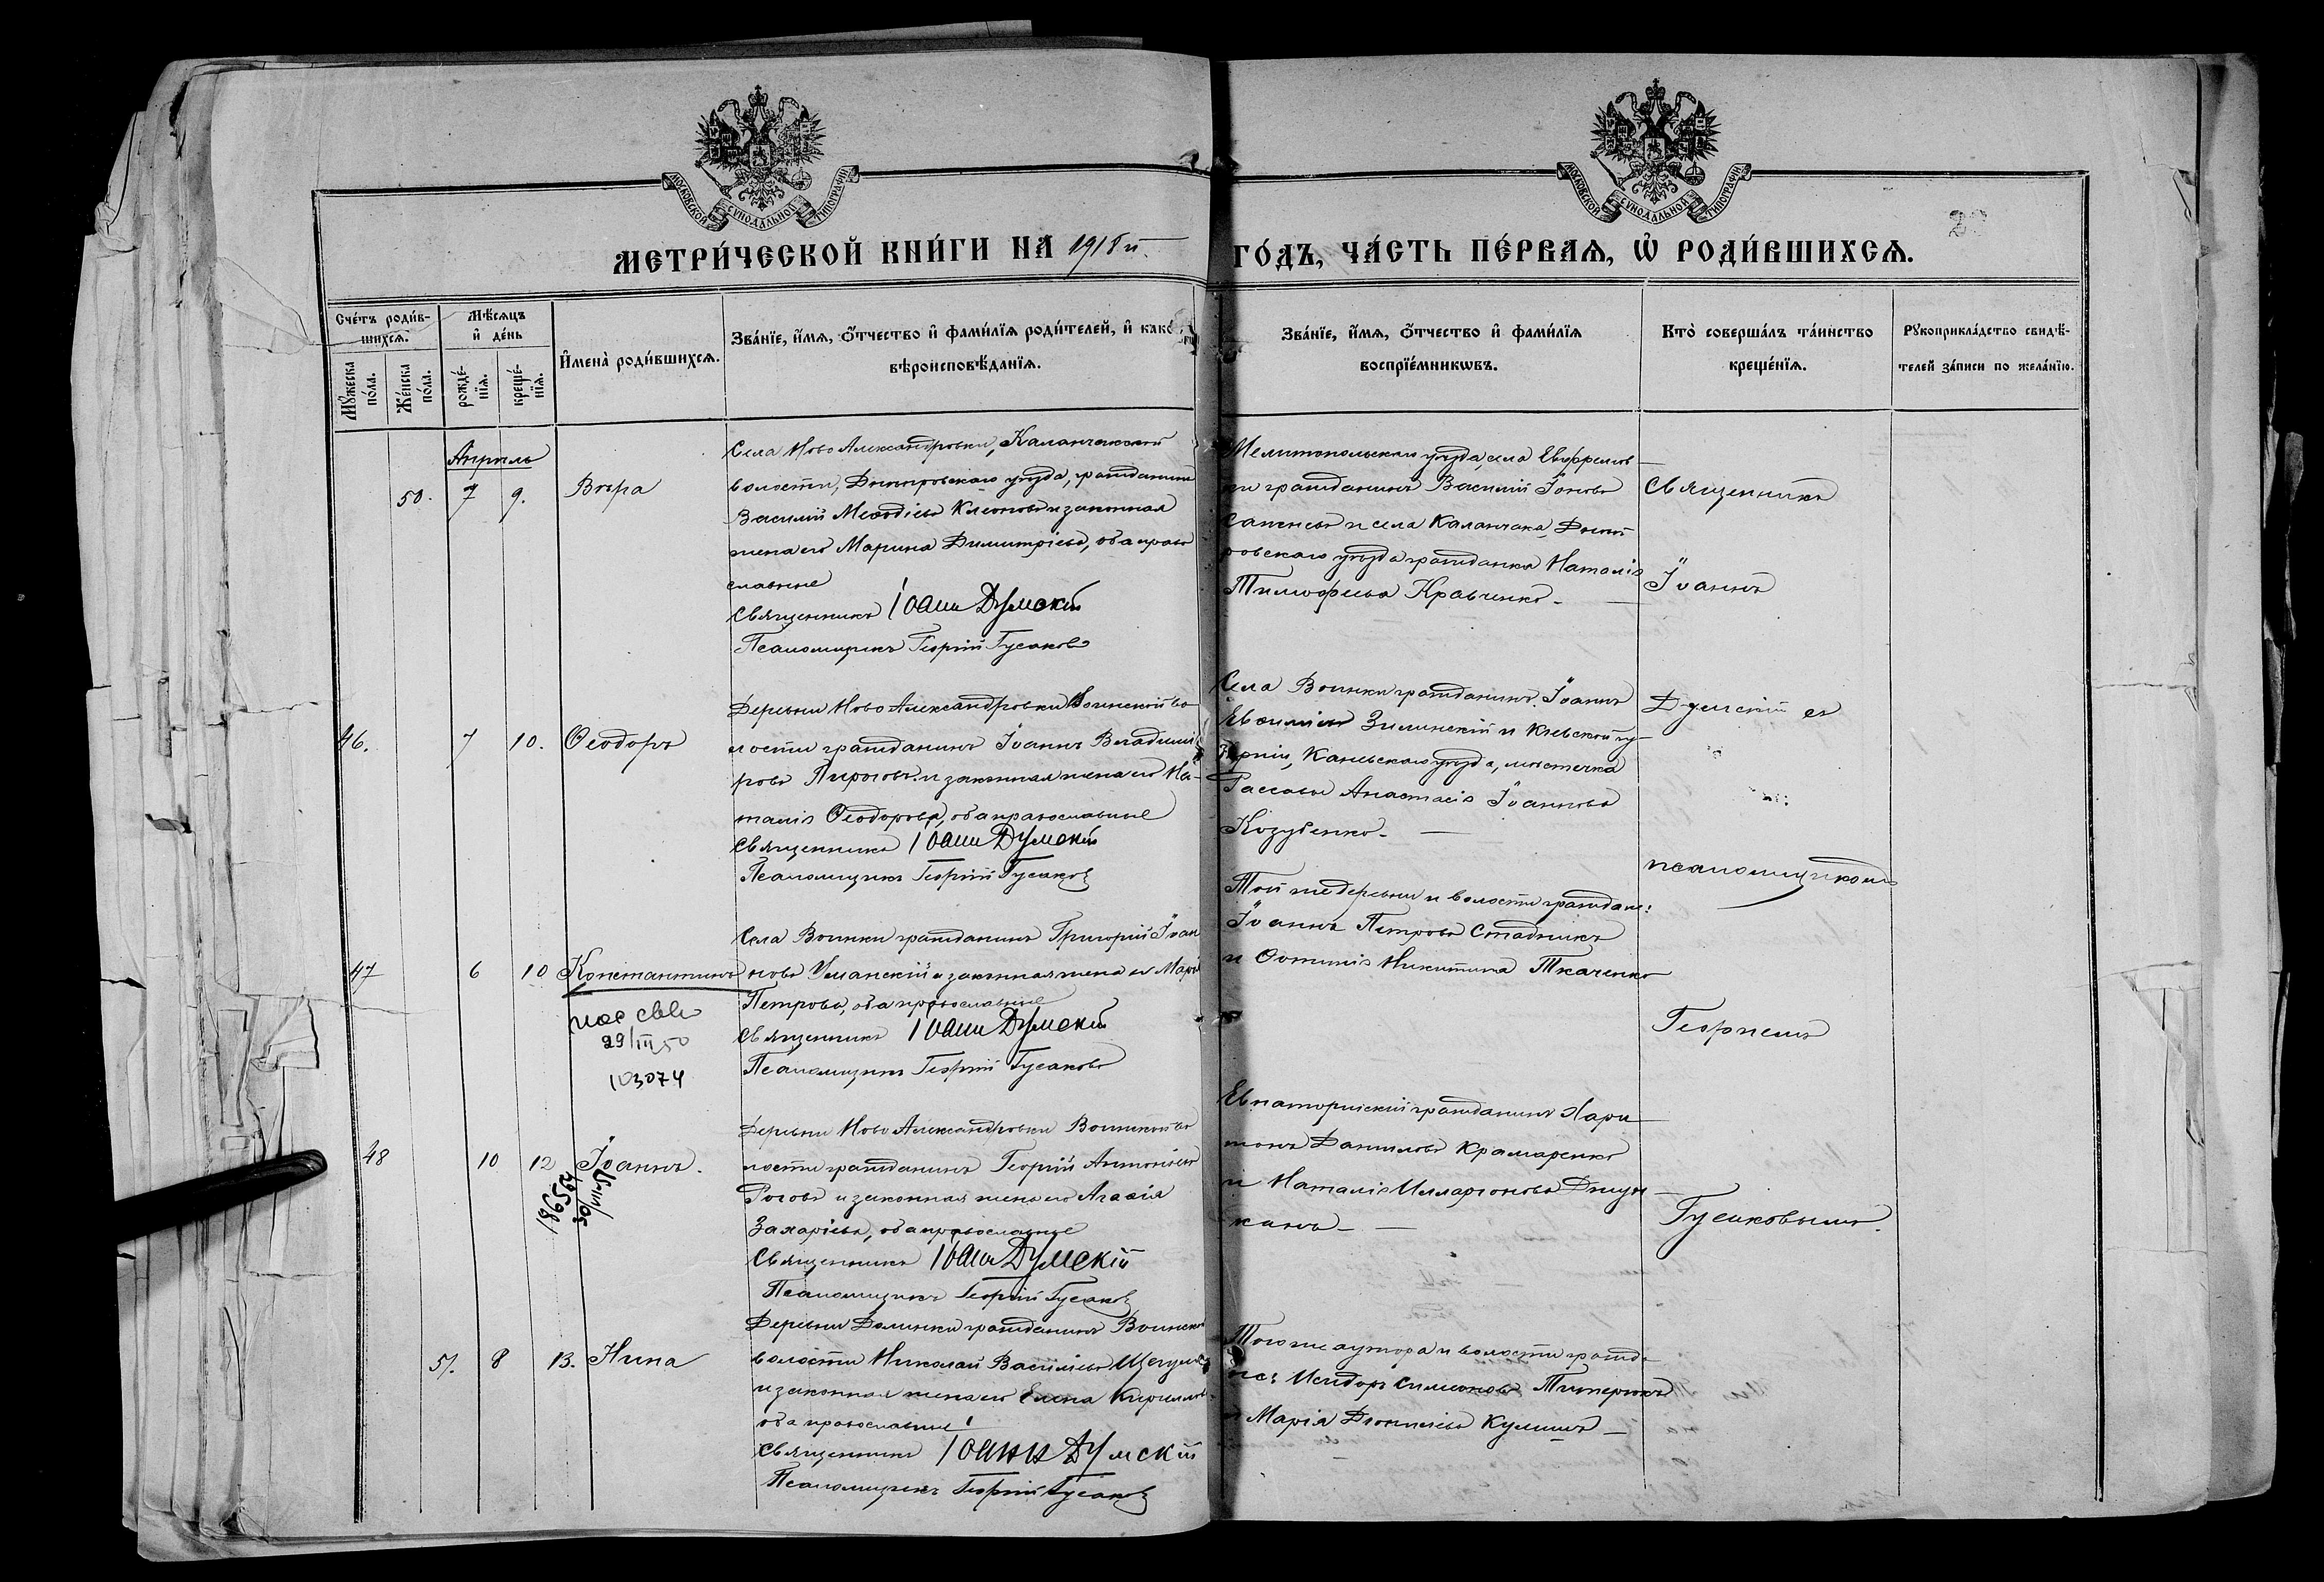 МОСКОВСКОЙ СѴНОДАЛЬНОЙ ТИПОГРАФІИ
МОСКОВСКОЙ СѴНОДАЛЬНОЙ ТИПОГРАФІИ
МЕТРИ́ЧЕСКОЙ КНИ́ГИ НА 1918 й
ГО́ДЪ, ЧА́СТЬ ПЕ́РВАѦ, Ѽ РОДИ́ВШИХСѦ.
Сче́тъ роди́в-
шихсѧ.
Мꙋ́жеска по́ла.
Же́нска по́ла.
Мѣ́сѧцъ и҆ де́нь
рожде́-нїѧ.
креще́-нїѧ.
И҆мена̀ роди́вшихсѧ.
Зва́нїе, и҆́мѧ, ѻ҆́тчество и҆ фами́лїѧ роди́телей, и҆ како́
вѣроисповѣ́данїѧ.
Зва́нїе, и҆́мѧ, ѻ҆́тчество и҆ фами́лїѧ
воспрїе́мникѡвъ.
Кто̀ соверша́лъ та́инство
креще́нїѧ.
Рꙋкоприкла́дство свидѣ́-
телей за́писи по жела́нїю.
Апрѣль
50. 7 9. Вѣра
Села Ново Александровки, Каланчакской
волости, Днѣпровскаго уѣзда, гражданинъ
Василій Меѳодіевъ Клеоновъ и законная
жена его Марина Димитріева, оба право
славные
Священникъ Іоанн Думскій
Псаломщикъ Георгій Гусаковъ
Мелитопольскаго уѣзда, села Ефремов
ки гражданинъ Василій Іоновъ
и села Каланчака Днѣп
ровскаго уѣзда гражданка Наталія
Тимофеева Кравченко.
Священникъ
Іоаннъ
46. 7 10. Ѳеодоръ
Деревни Ново Александровки Воинской во
лости гражданинъ Іоаннъ Владимі
ровъ Пироговъ и законная жена его На
талія Ѳеодорова, оба православные
Священникъ Іоанн Думскій
Псаломщикъ Георгій Гусаковъ
Села Воинки гражданинъ Іоаннъ
Евѳиміевъ Зилинскій и Кіевской гу
берніи, Каневскаго уѣзда, мѣстечка
Анастасія Іоаннова
Козубенко.
Думскій съ
псаломщикомъ
47 6 10 Константинъ
Села Воинки гражданинъ Григорій Іоан
новъ Уманскій и законная жена его Марія
Петрова, оба православные
Священникъ Іоанн Думскій
Псаломщикъ Георгій Гусаковъ
29/III 50
103074
Той же деревни и волости граждане:
Іоаннъ Петровъ Стадникъ
и Фотинія Никитина Ткаченко
Георгіемъ
48 10 12 Іоаннъ.
Деревни Ново Александровки Воинской во
лости гражданинъ Георгій Антоніевъ
Роговъ и законная жена его Агаѳія
Захаріева, оба православные
Священникъ Іоанн Думскій
Псаломщикъ Георгій Гусаковъ
Евпаторійскій гражданинъ Хари
тонъ Даниловъ Крамаренко
и Наталія Илларіонова
Гусаковымъ.
51. 8 13. Нина
Деревни Долинки гражданинъ Воинской
волости Николай Василіевъ
и законная жена его Елена Кириллова
оба православные
Священникъ Іоанн Думскій
Псаломщикъ Георгій Гусаковъ
Того же хутора и волости гражда
не: Исидоръ Симеоновъ
и Марія Кулишъ